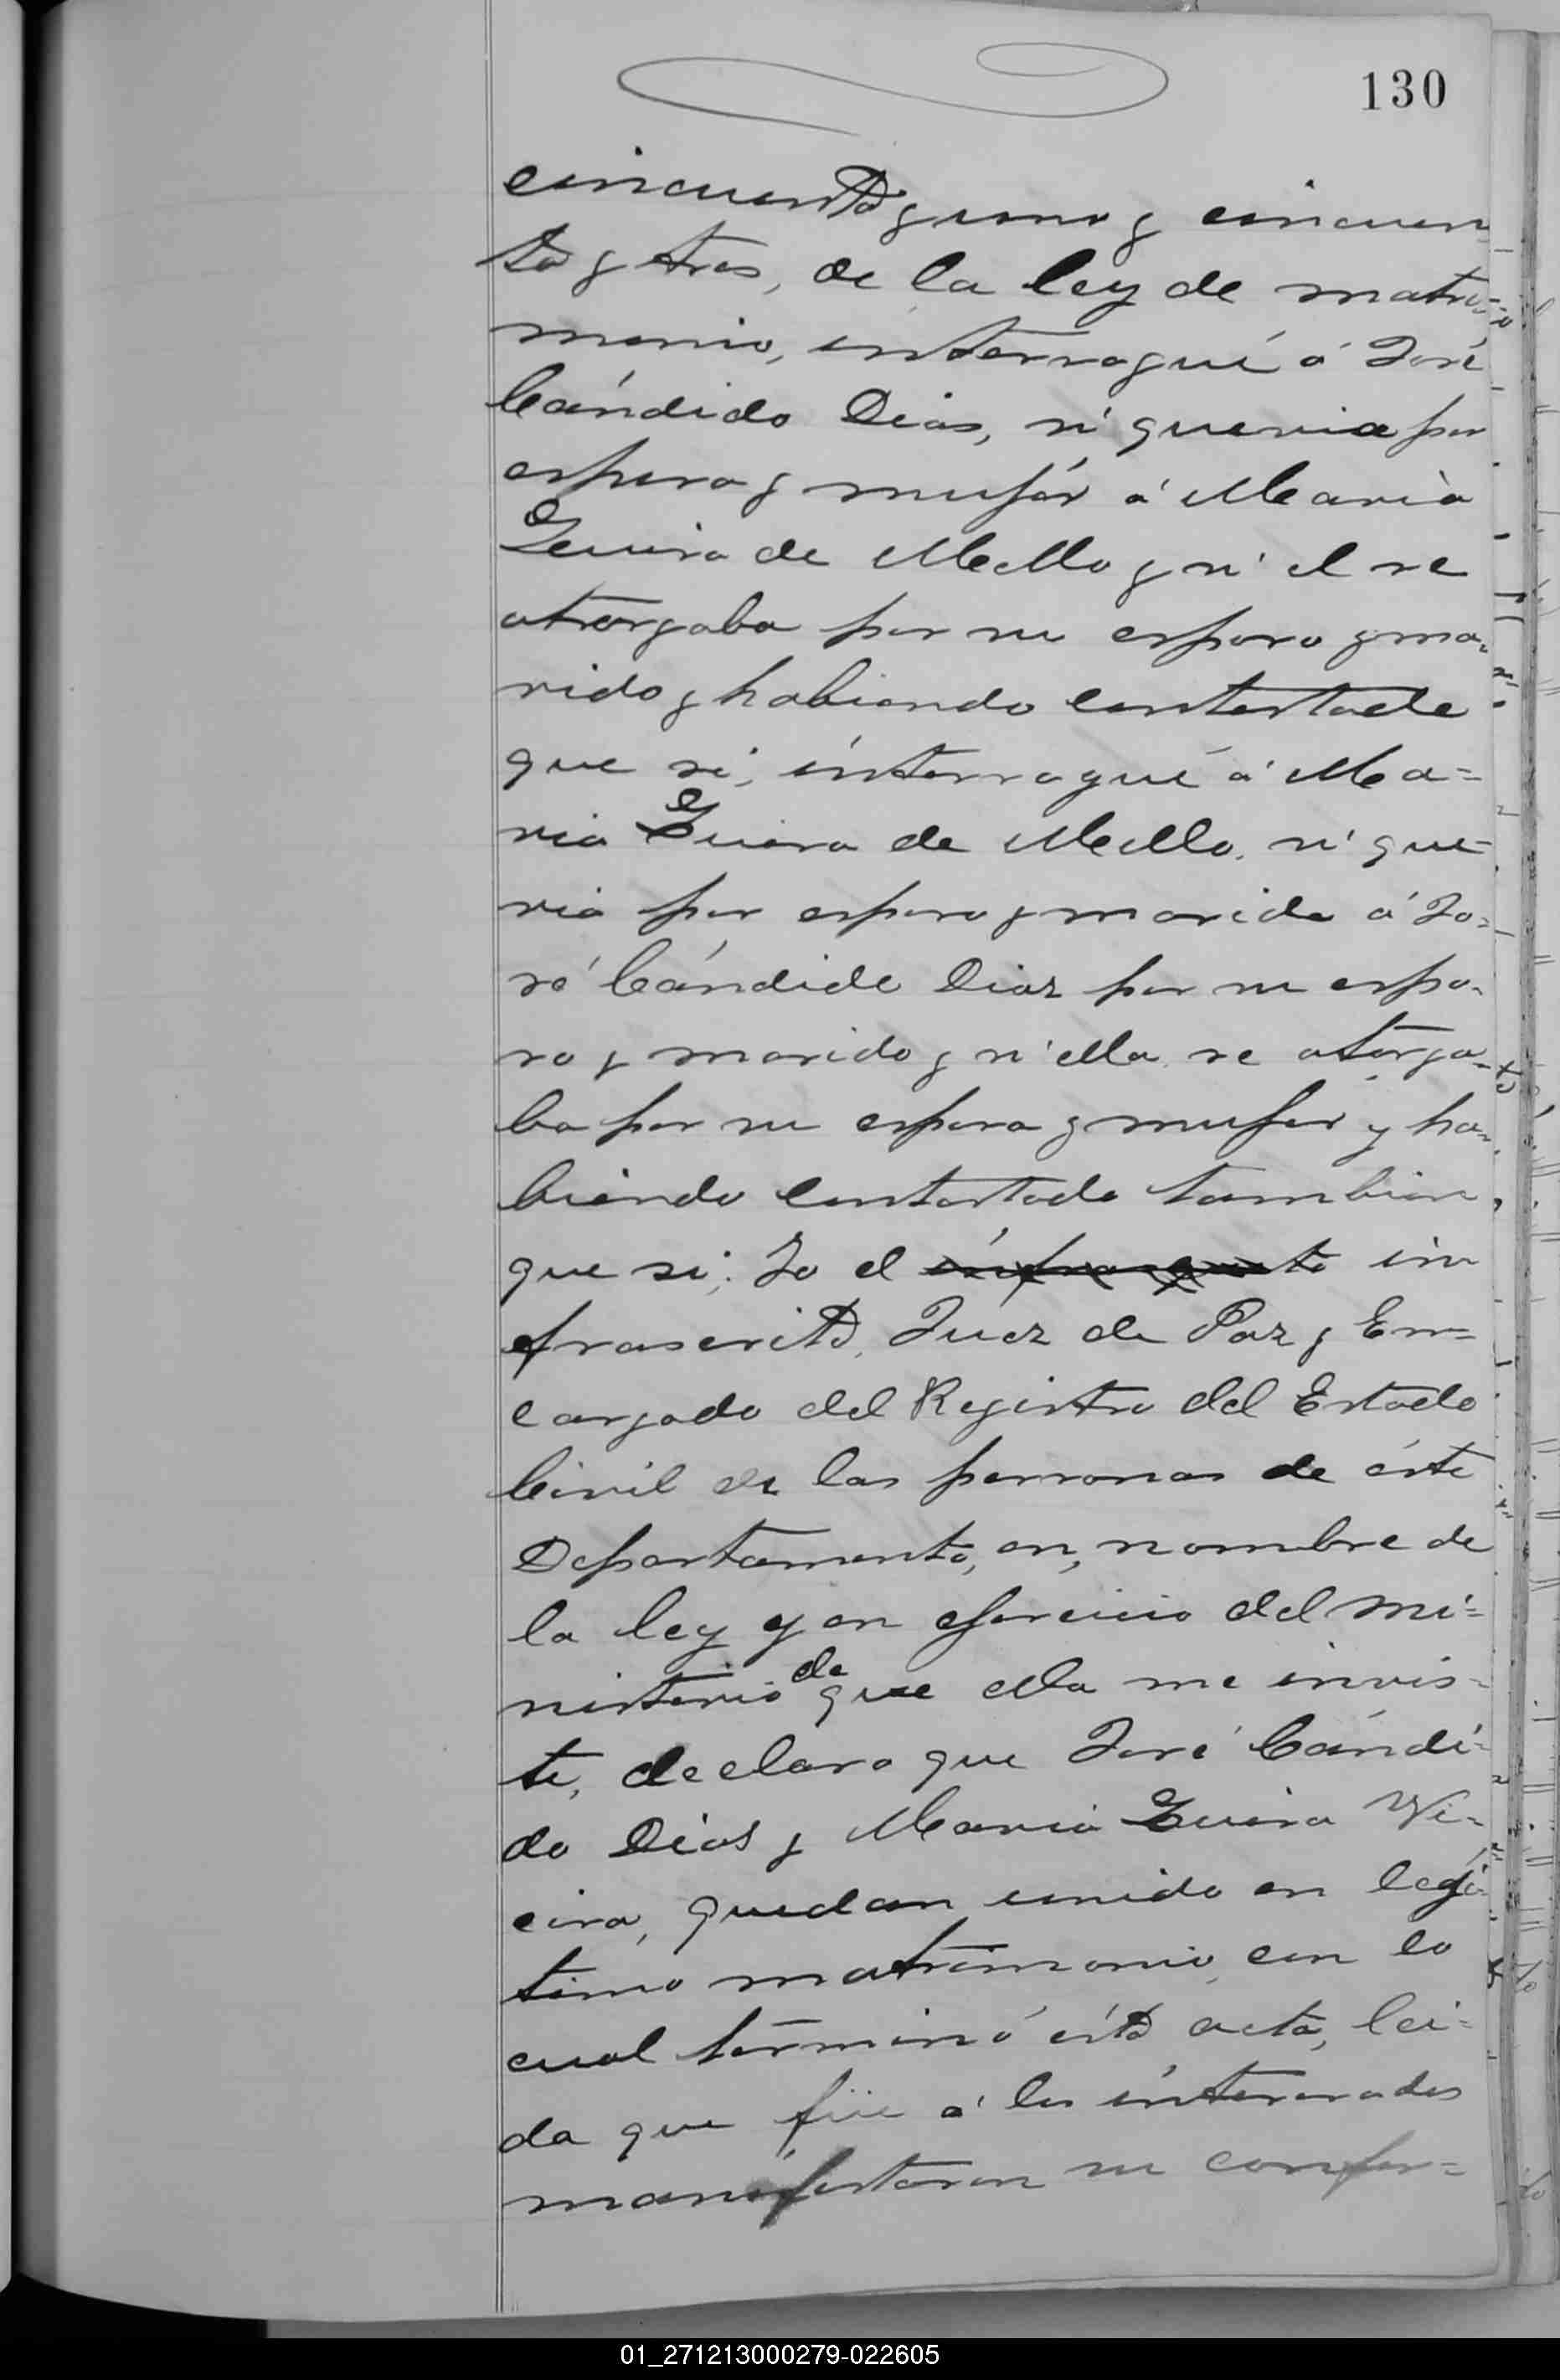 130
cincuenta y uno y cincuen
ta y tres, de la ley de matri=
monio, interrogué á José
Cándido Dias, si queria por
esposa y mujér á Maria
Luisa de Mello y si el se
otorgaba por su esposo y ma=
rido y habiendo contestado
que si, interrogué á Ma=
ria Luisa de Mello, si que=
ria por esposo y marido á Jo=
sé Cándido Diaz por su espo=
so y marido y si ella se otorga=
ba por su esposa y mujer y ha=
biendo contestado tambien
que si; Yo el infrascrito in
frascrito, Juez de Paz y En=
cargado del Registro del Estado
Civil de las personas de éste
Departamento, en, nombre de
la ley y en ejercicio del mi=
nisterio de que ella me invis=
te, declaro que José Cándi=
do Dias y Maria Luisa Vi=
eira, quedan unido en legí=
timo matrimonio, con lo
cual términó ésta acta, lei=
da que fúe á los interesados
manifestaron su confor=
01_271213000279-022605